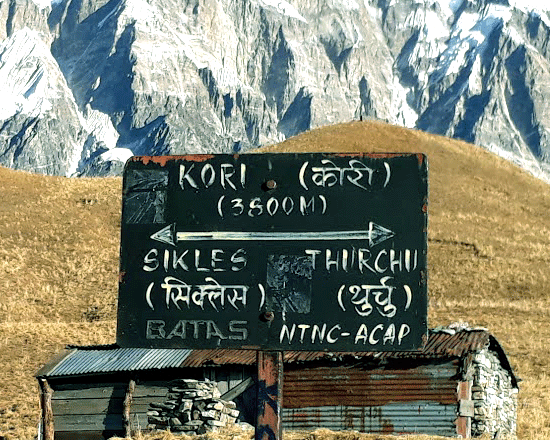 KORI (कोरी)
(3800M)
SIKLES THURCHU
(सिक्लेस) (थुर्चु)
BATAS NTNC-ACAP